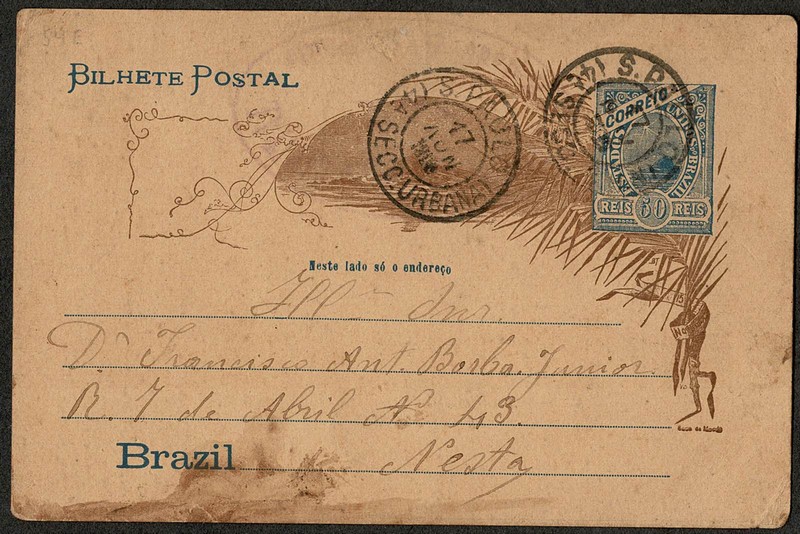 BILHETE POSTAL
S. PAULO
(4A SECC. URBANA)
17
NOV
S. P
CORREIO
ESTADOS UNIDOS BRAZIL
REIS 60 REIS
Neste lado só o endereço
Illmo Snr.
Dr Francisco Ant. Borba Junior
R. 7 de Abril No 43.
Brazil
Nesta